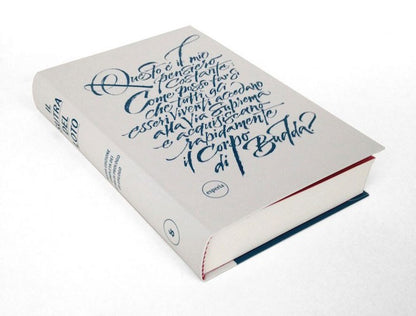 Questo è il mio
pensiero
costante:
Come posso far sì
che tutti gli
esseri viventi accedano
alla Via Suprema
e acquisiscano
rapidamente
il Corpo
di Budda?
esperia
IL
SUTRA
DEL
LOTO